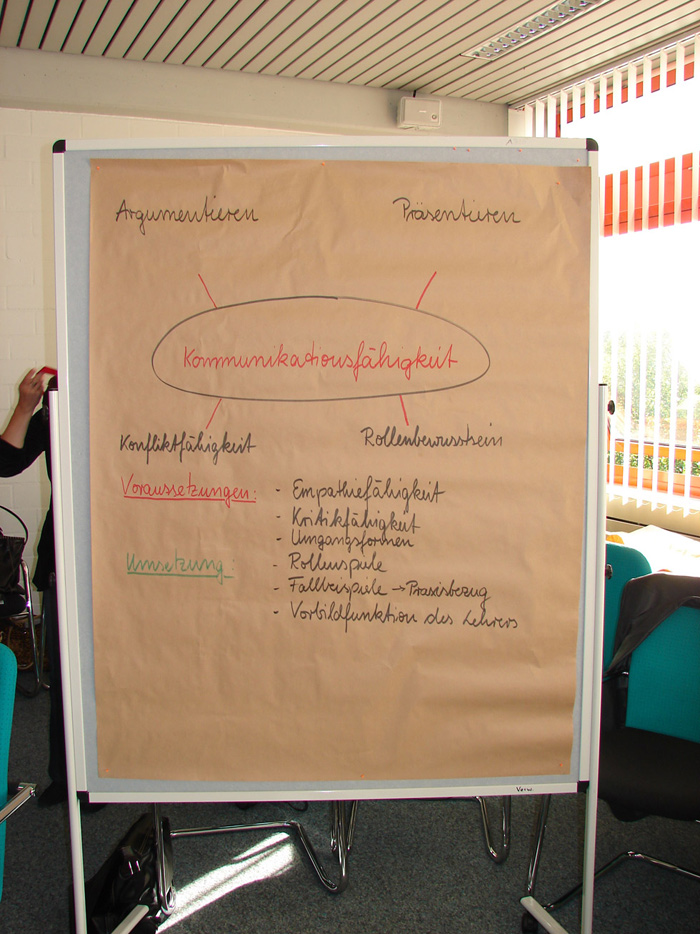 Argumentieren
Präsentieren
Kommunikationsfähigkeit
Konfliktfähigkeit
Rollenbewusstsein
Voraussetzungen: - Empathiefähigkeit
- Kritikfähigkeit
- Umgangsformen
Umsetzung: - Rollenspiele
- Fallbeispiele → Praxisbezug
- Vorbildfunktion des Lehrers